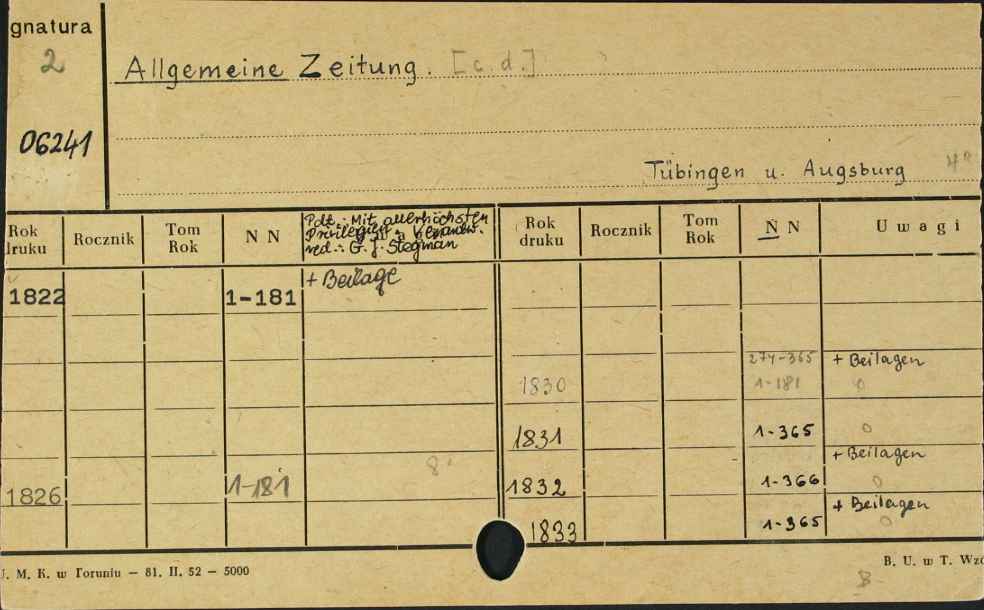 gnatura
2
Allgemeine Zeitung. [c.d.]
06241
Tübingen u. Augsburg 4°
Rok druku Rocznik Tom Rok N N Pdt.: Mit allerhöchsten Privilegien red.: G. J. Stegman Rok druku Rocznik Tom Rok N N Uwagi
1822 1-181 + Beilage
274-365 + Beilagen
1830 1-181 0
1831 1-365 0
+ Beilagen
1826 1-181 8 1832 1-366 0
+ Beilagen
1833 1-365 0
J. M. K. w Toruniu — 81. II. 52 — 5000 B. U. w T. Wzó
B